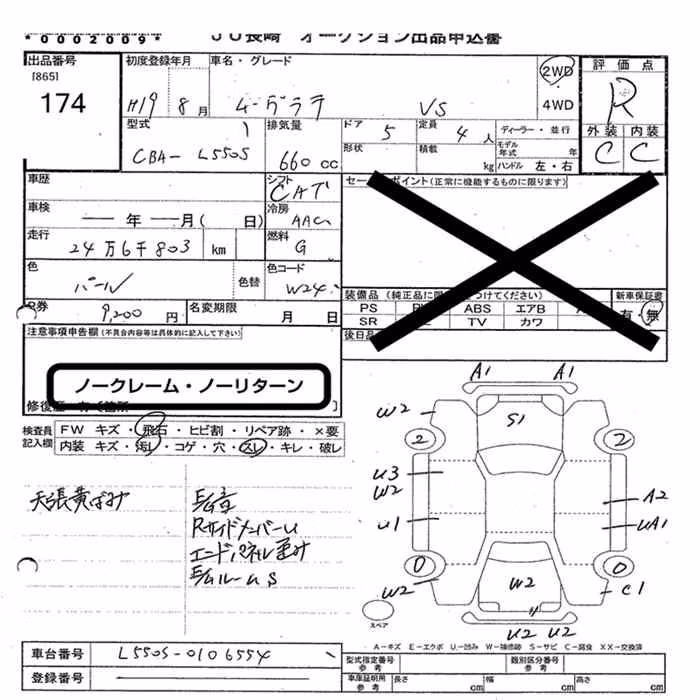 *0002009*
JU長崎 オークション出品申込書
出品番号
[865]
174
初度登録年月
H19 8月
車名・グレード
ムーヴラテ VS
2WD
4WD
評価点
R
外装 内装
C C
型式
CBA-L550S
排気量
660cc
ドア 5
定員 4人
形状
積載 kg
ディーラー・並行
モデル年式 年
ハンドル 左・右
車歴
シフト
CAT
セールスポイント(正常に機能するものに限ります)
車検
年 月( 日)
冷房
AAC
走行
24万6千803 km
燃料
G
色
パール
色替
色コード
W24
装備品
PS
ABS エアB
SR TV カワ
新車保証書
有・無
後日品
R券
9,200円
名変期限
月 日
注意事項申告欄(不具合内容等は具体的に記入して下さい)
ノークレーム・ノーリターン
修復歴
検査員記入欄
FW キズ・飛石・ヒビ割・リペア跡・×要
内装 キズ・汚レ・コゲ・穴・スレ・キレ・破レ
天張黄ばみ
RサイドメンバーU
エンドパネル歪み
A1 A1
W2 S1
2 2
U3
W2
A2
U1 UA1
0 0
W2 W2 C1
U2 U2
スペア
A-キズ E-エクボ U-凹み W-補修跡 S-サビ C-腐食 XX-交換済
車台番号
L550S-0106554
登録番号
型式指定番号
参考
類別区分番号
参考
車庫証明用
参考
長さ cm
幅 cm
高さ cm